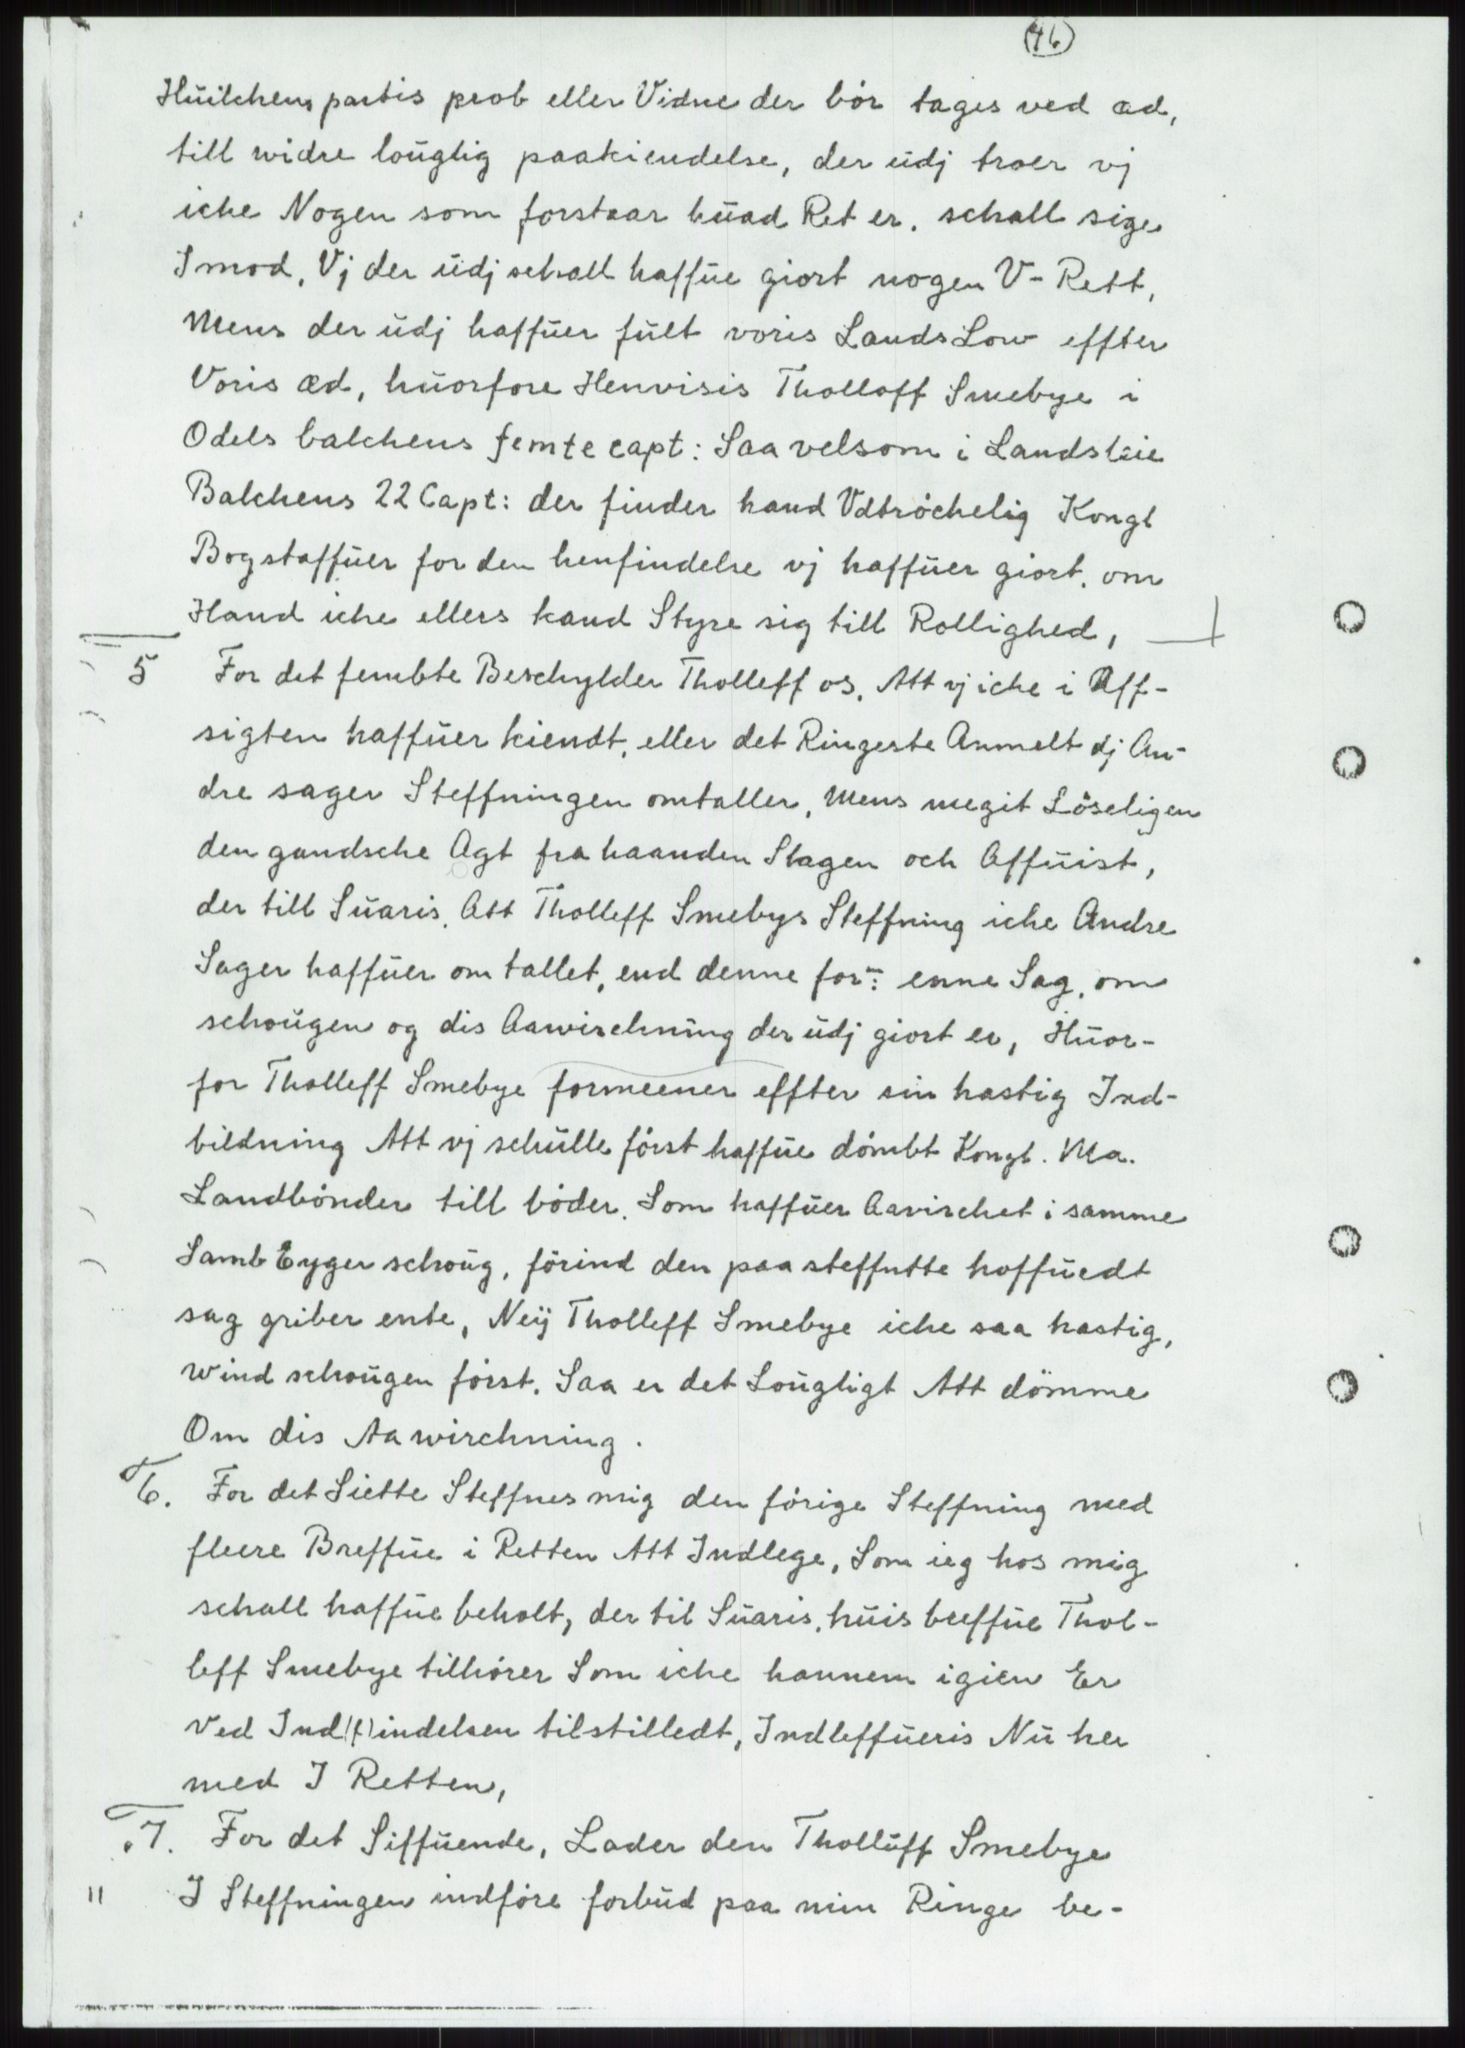 (46)
Huilchens partis prob eller Vidne der bör tages ved æd,
till widre louglig paakiendelse, der udj troer vj
iche Nogen som forstaar huad Ret er. schall sige
Imod, Vj der udj schall haffue giort nogen V-Rett,
Mens der udj haffuer fült voris Lands Low effter
Voris æd, huorfore Henvisis Tholloff Smebye i
Odels balchens femte capt: Saa velsom i Landsleie
Balchens 22 Capt: der finder hand Vdtröchelig Kongl
Bogstaffuer for den henfindelse vj haffuer giort. om
Hand iche ellers kand Styre sig till Rollighed,
5 For det fembte Beschylder Tholleff os, Att vj iche i Aff-
sigten haffuer kiendt, eller det Ringeste Anmelt dj An-
dre sager Steffningen omtaller, Mens megit Löseligen
den gandsche Agt fra haanden Slagen och Affuist,
der till Suaris. Att Tholleff Smebys Steffning iche Andre
Sager haffuer om tallet, end denne for:ne enne Sag, om
schougen og dis Aawirchning der udj giort er, Huor-
for Tholleff Smebye formeener effter sin hastig Ind-
bildning Att vj schulle först haffue dömbt Kongl. Ma.
Landbönder till böder. Som haffuer Aavirchet i samme
Samb Eyger schoug, förind den paa steffntte hoffuedt
sag griber ente, Neij Tholleff Smebye iche saa hastig,
wind schougen först. Saa er det Lougligt Att dömme
Om dis Aawirchning.
6. For det Siette Steffnes mig den förige Steffning med
fleere Breffue i Retten Att Indlege, Som ieg hos mig
schall haffue beholt, der til Suaris, huis breffue Thol-
leff Smebye tilhörer Som iche hannem igien Er
Ved Ind(f)indelsen tilstilledt, Indleffueris Nu her
med I Retten,
7. For det Siffuende, Lader den Tholluff Smebye
" I Steffningen indföre forbud paa min Ringe be-